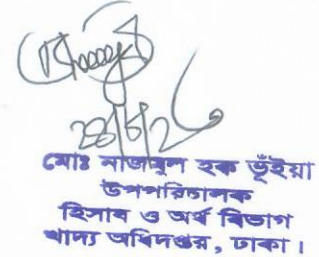 মোঃ নাজমুল হক ভূঁইয়া
উপপরিচালক
হিসাব ও অর্থ বিভাগ
খাদ্য অধিদপ্তর, ঢাকা।